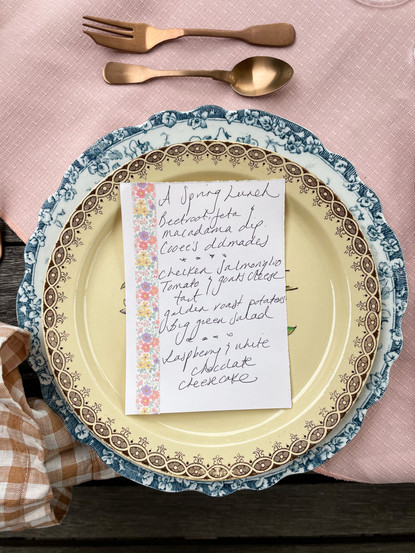 A Spring Lunch
Beetroot feta &
macadamia dip
Cooee's dolmades
Chicken Salmoriglio
Tomato & goats cheese
tart
golden roast potatoes
Big green salad
Raspberry & white
chocolate
cheesecake